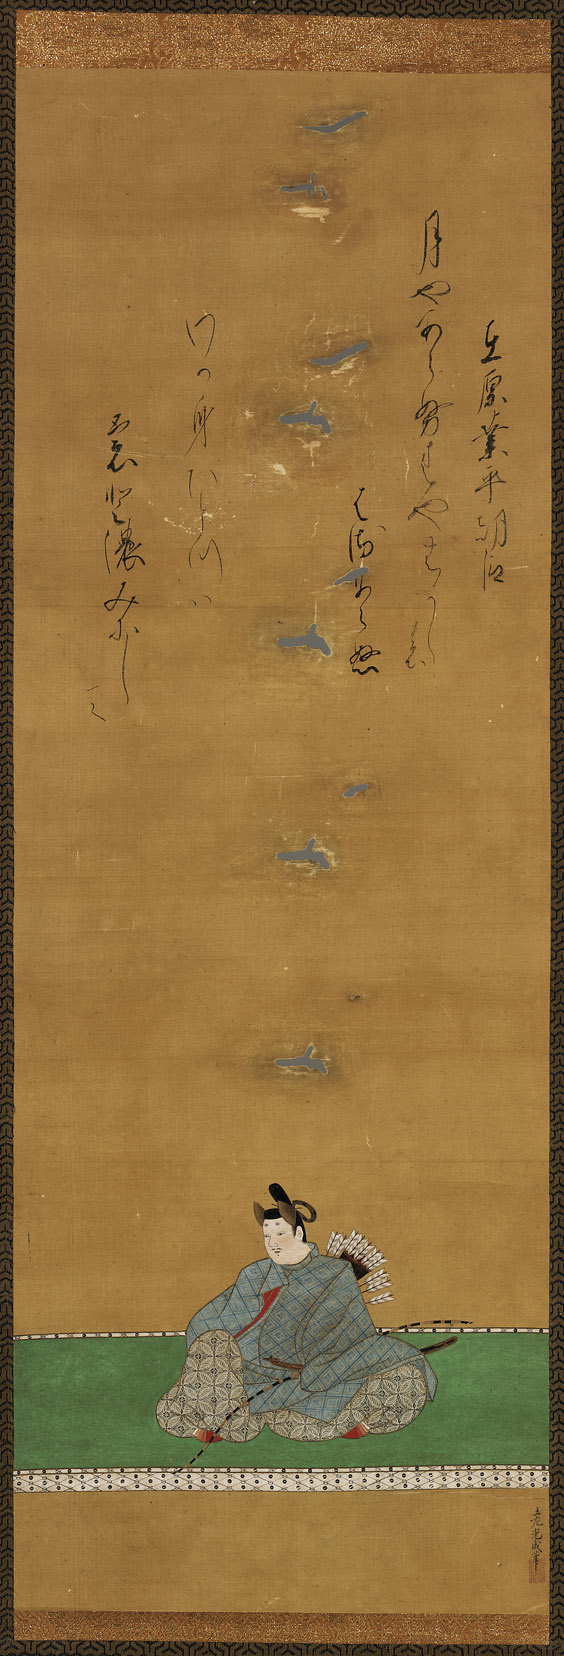 在原業平朝臣
月やあらぬ春やむかしの
はるならぬ
わか身ひとつは
もとのみにして
土佐光成筆